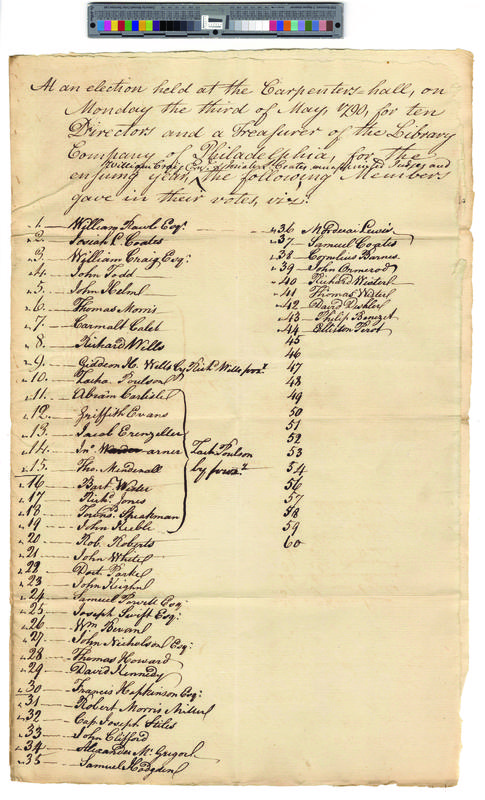 At an election held at the Carpenters hall, on
Monday the third of May, 1790, for ten
Directors and a Treasurer of the Library
Company of Philadelphia, for the
William Craig Esqr. & Josiah Coates were appointed Judges and
ensuing year, the following Members
gave in their votes, viz:
1. William Rawl Esqr.
2. Josiah L Coates
3. William Craig, Esqr.
4. John Todd
5. John Helm
6. Thomas Morris
7. Carmalt Calet
8. Richard Wells
9. Gideon H. Wells by Richd. Wells proxy
10. Zacha. Poulson
11. Abram Carlisle
12. Griffith Evans
13. Jacob Erenzeller
14. Jno. Warner
15. Tho. Mendenall
16. Bart. Wister
17. Richd. Jones
18. Townsd. Speakman
19. John Keeble
Zach Poulson
by proxy
20. Rob. Roberts
21 John White
22 Doct. Parke
23 John Keighn
24 Samuel Powell Esq.
25 Joseph Swift Esq:
26 Wm. Bevan
27. John Nicholson Esq:
28 Thomas Howard
29 David Kennedy
30 Francis Hopkinson Esq:
31 Robert Morris Miller
32 Cap Joseph Stiles
33 John Clifford
34 Alexander Mc. Grigor
35 Samuel Hodgden
36 Mordecai Lewis
37 Samuel Coates
38 Cornelius Barnes
39 John Ormerod
40 Richard Wister
41 Thomas Wister
42 David Deshler
43 Philip Benezet
44 Elliston Perot
45
46
47
48
49
50
51
52
53
54
56
57
58
59
60